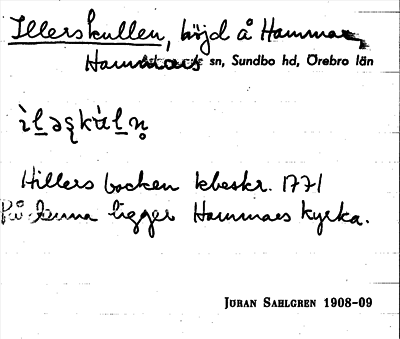 Illerskullen, höjd å Hammar
Hammars sn, Sundbo hd, Örebro län
ìl̲əʂkàl̲n̥
Hillers backen kbeskr. 1771
På denna ligger Hammars kyrka.
JÖRAN SAHLGREN 1908-09